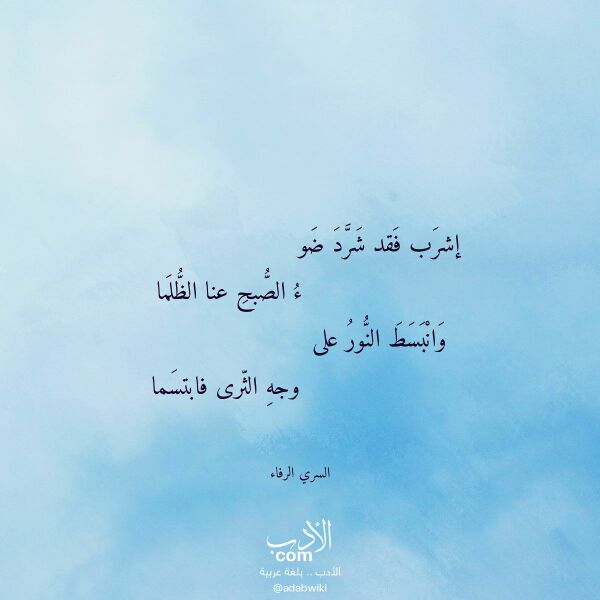 إشرَب فَقد شَرَّدَ ضَو
ءُ الصُّبحِ عنا الظُّلَما
وَانْبَسَطَ النُّورُ على
وجهِ الثّرى فابتسَما
السري الرفاء
الأدب
com
الأدب .. بلغة عربية
@adabwiki